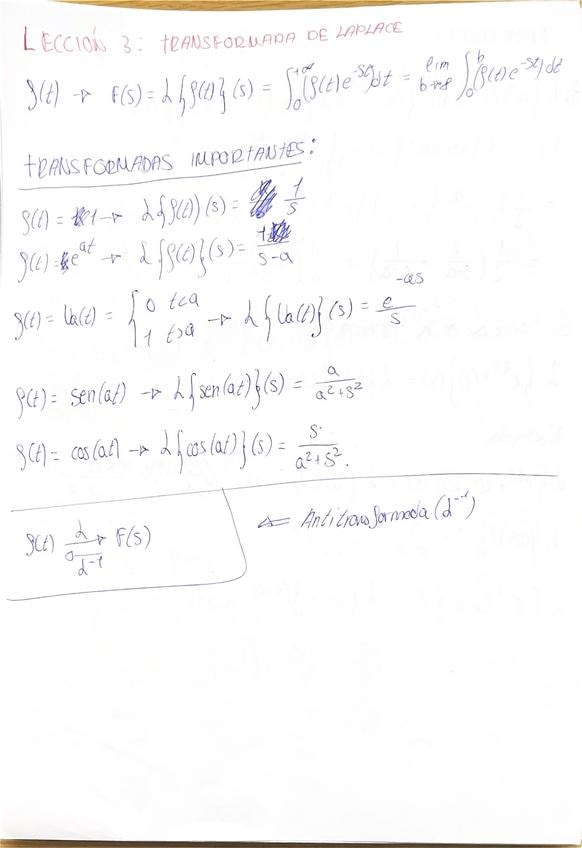 LECCIÓN 3: TRANSFORMADA DE LAPLACE
f(t) → F(s) = L{f(t)}(s) = ∫₀^{+∞} (f(t)e^{-st})dt = lim_{b→∞} ∫₀^b (f(t)e^{-st})dt
TRANSFORMADAS IMPORTANTES:
f(t) = 1 → L{f(t)}(s) = 1/s
f(t) = e^{at} → L{f(t)}(s) = 1/(s-a)
f(t) = Ua(t) = { 0 t<a 1 t>a → L{Ua(t)}(s) = e^{-as}/s
f(t) = sen(at) → L{sen(at)}(s) = a/(a²+s²)
f(t) = cos(at) → L{cos(at)}(s) = s/(a²+s²).
f(t) L ⇄ L⁻¹ F(s)
⇐ Antitransformada (L⁻¹)